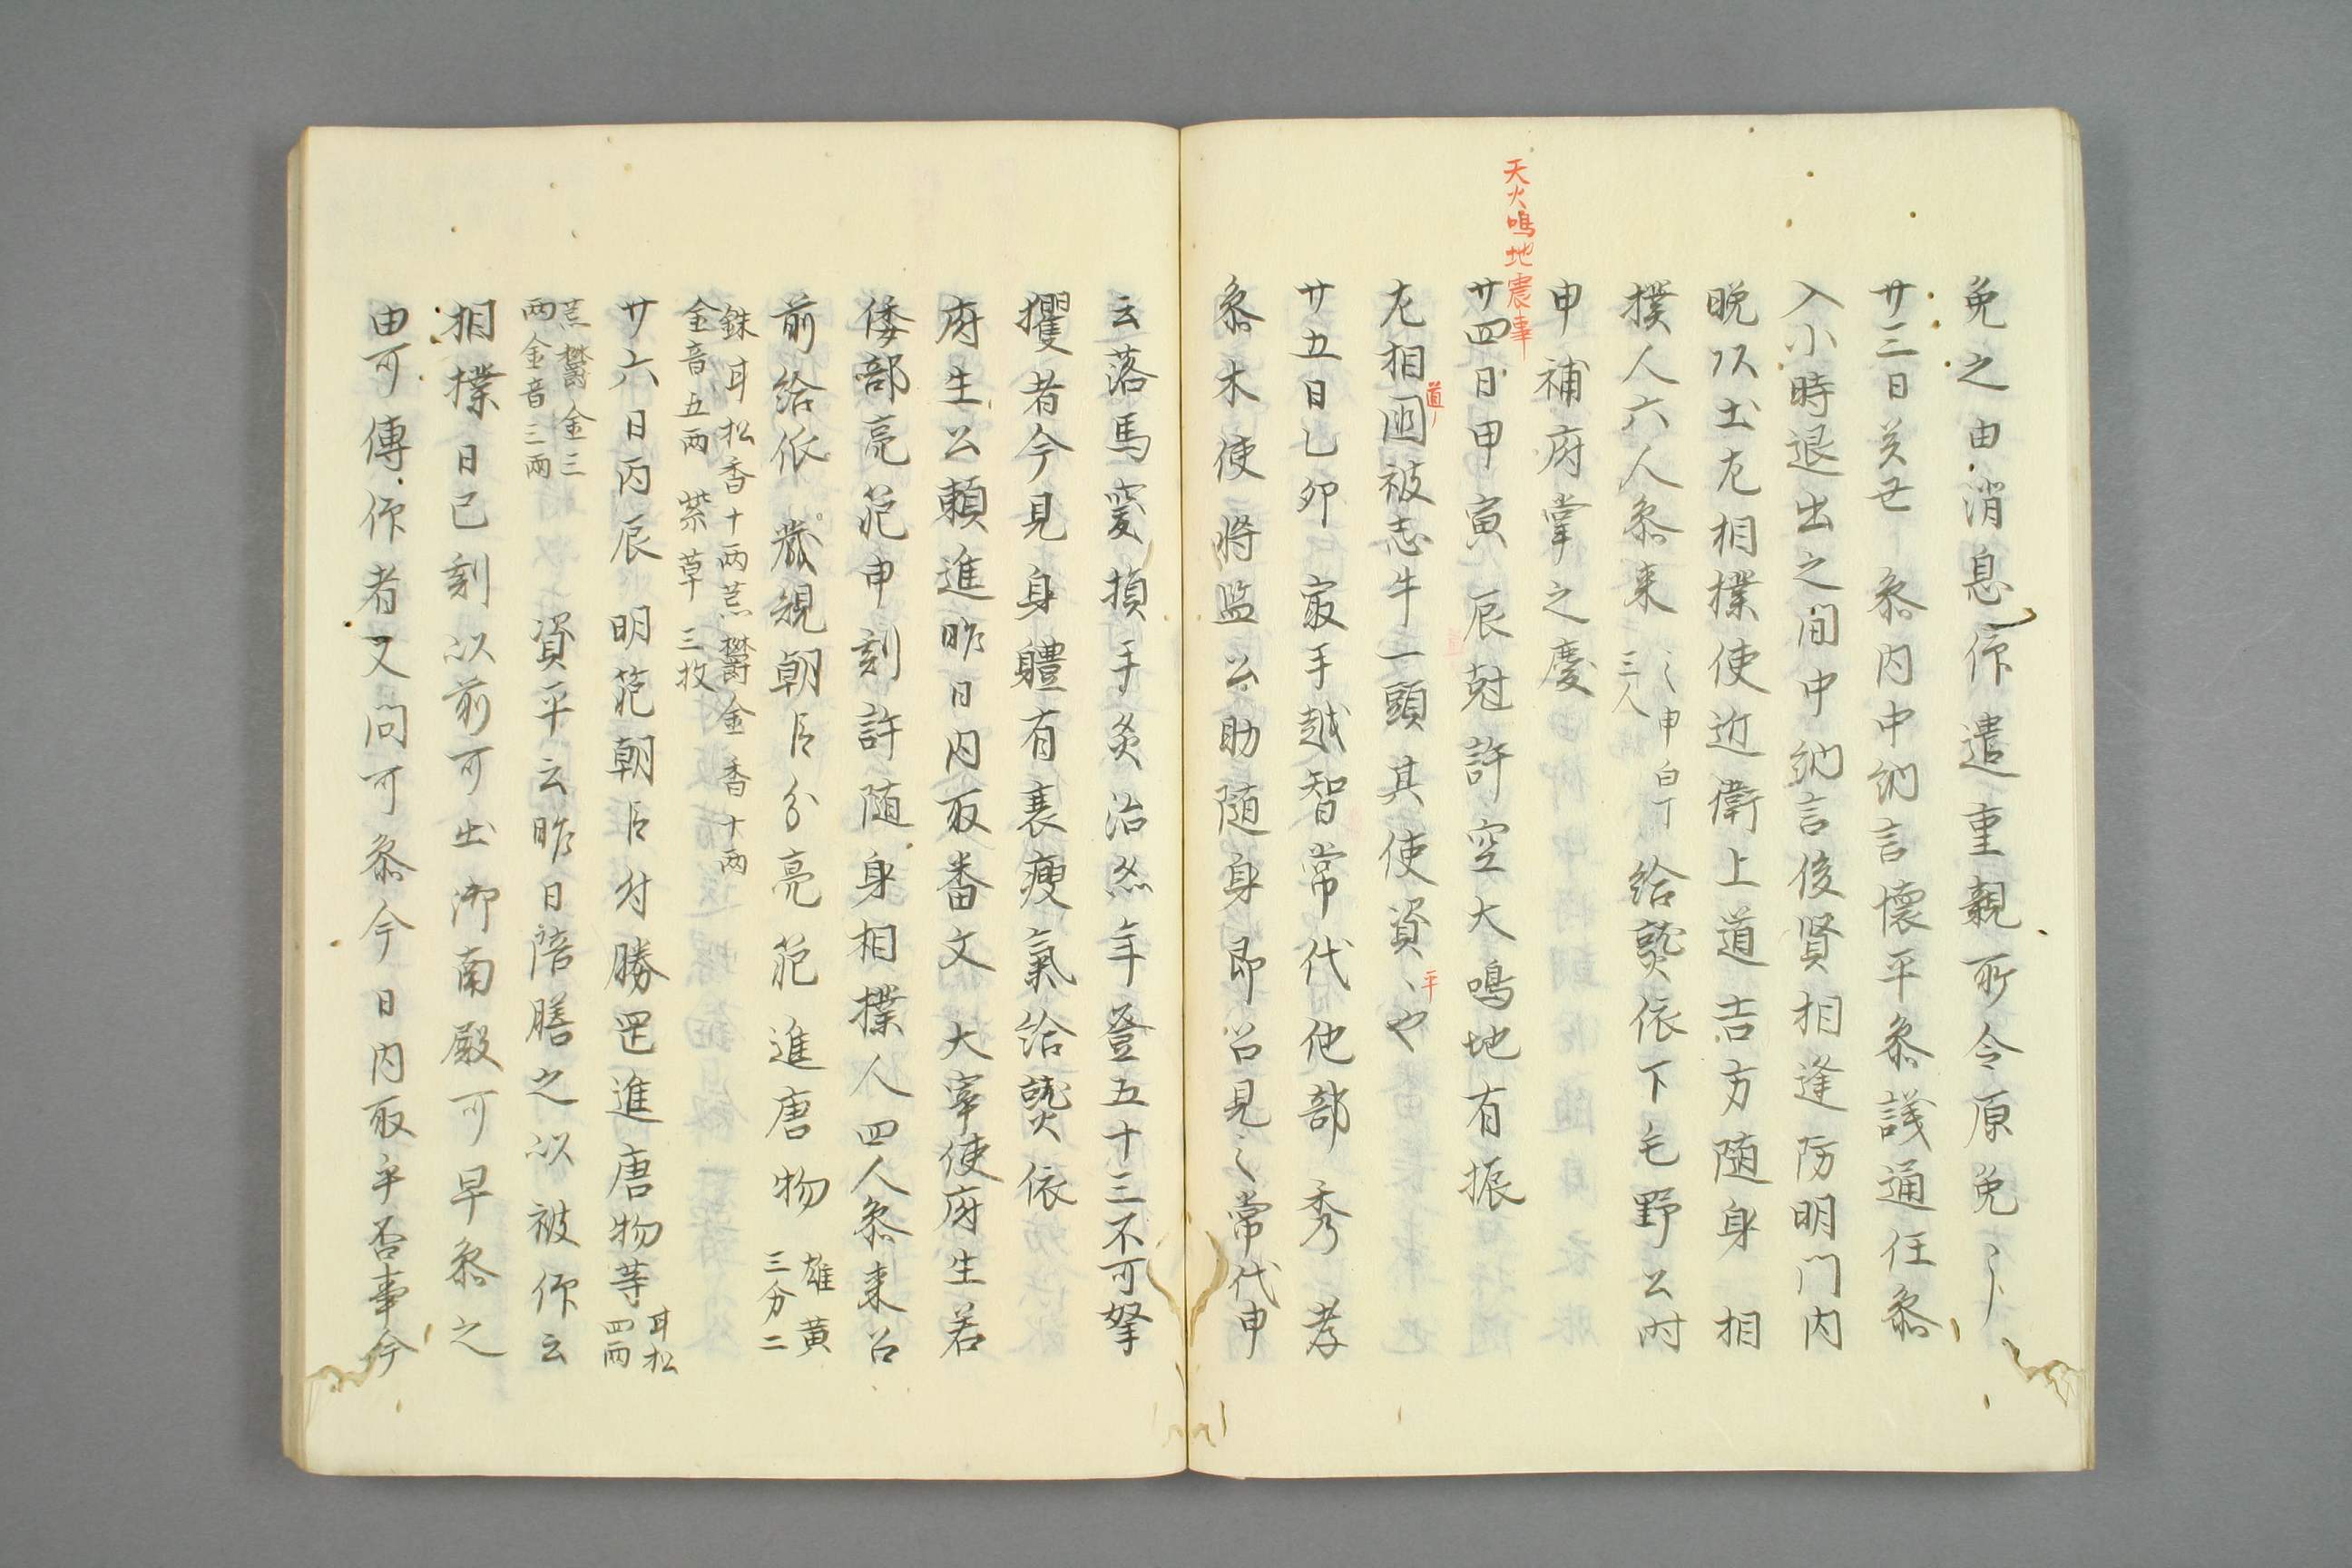 免之由消息仰遣重親所令原免了
廿三日癸丑 参内中納言懐平参議通任参
入小時退出之間中納言俊賢相逢陽明門内
晩以出左相撲使近衛上道吉方随身相
撲人六人参来
之申白丁
三人
給熟依下毛野公時
申補府掌之慶
天火鳴地震事
廿四日甲寅 辰尅許空大鳴地有振
左相国被志牛一頭其使資〻や
道
平
廿五日乙卯 最手越智常代他部秀孝
参木使将監公助随身即召見之常代申
云落馬突損手灸治然年登五十三不可拏
攫者今見身軆有衰痩氣給熟依
府生公頼進昨日内取番文 大宰使府生若
倭部亮範申刻許随身相撲人四人参来召
前給依 蔵規朝臣分亮範進唐物
雄黄
三分二
銖甘松香十両荒欝金香十両
金音五両 紫草三枚
廿六日丙辰 明範朝臣付勝岡進唐物等
甘松
四両
荒欝金三
両金音三両
資平云昨日陪膳之以被仰云
相撲日已刻以前可出御南殿可早参之
由可傳仰者又問可参今日内取乎否事今